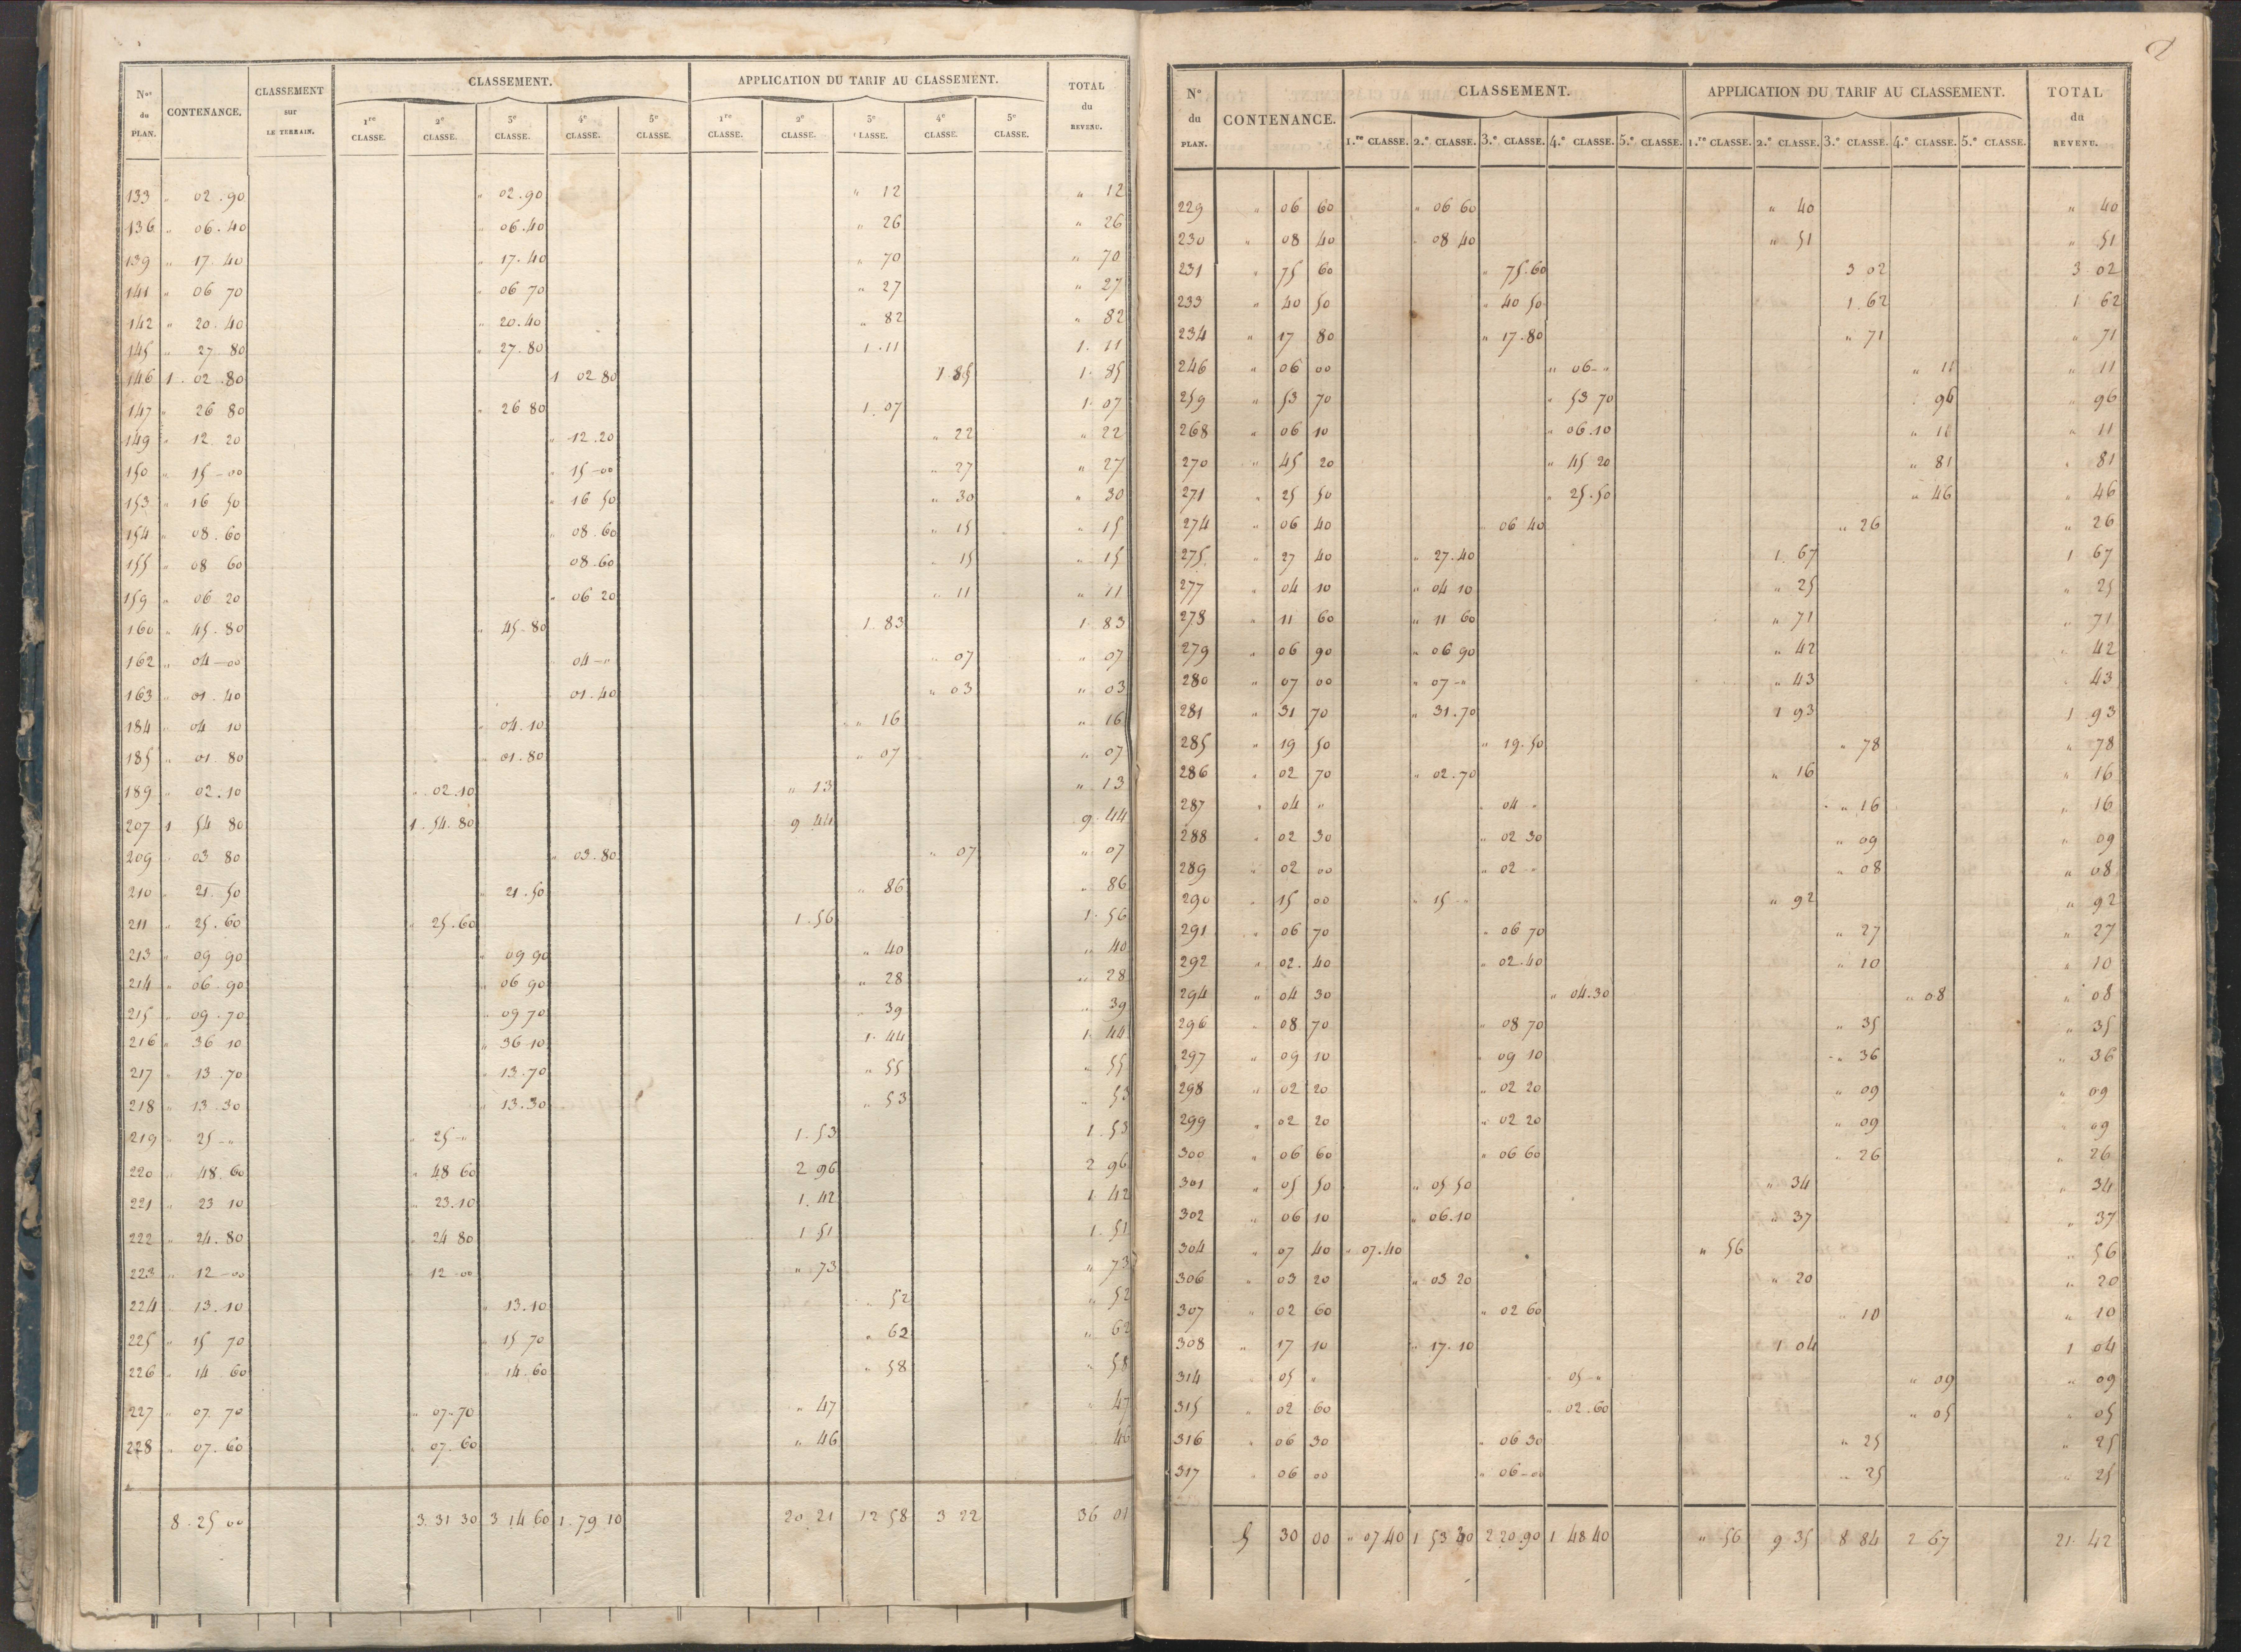 N.os du PLAN. CONTENANCE. CLASSEMENT sur LE TERRAIN. CLASSEMENT. APPLICATION DU TARIF AU CLASSEMENT. TOTAL du REVENU.
1re CLASSE. 2e CLASSE. 3e CLASSE. 4e CLASSE. 5e CLASSE. 1re CLASSE. 2e CLASSE. 3e CLASSE. 4e CLASSE. 5e CLASSE.
133 " 02.90 " 02.90 " 12 " 12
136 " 06.40 06.40 " 26 " 26
139 " 17.40 " 17.40 " 70 " 70
141 " 06 70 " 06 70 " 27 " 27
142 " 20.40 " 20.40 " 82 " 82
145 " 27 80 " 27.80 1.11 1.11
146 1.02.80 1 02 80 1.85 1.85
147 " 26 80 " 26 80 1.07 1.07
149 " 12 20 " 12.20 " 22 " 22
150 " 15-00 " 15-00 " 27 " 27
153 " 16 50 " 16 50 " 30 " 30
154 " 08.60 " 08.60 " 15 " 15
155 " 08 60 08.60 " 15 " 15
159 " 06 20 " 06 20 " 11 " 11
160 " 45.80 " 45.80 1.83 1.83
162 " 04-00 04-" " 07 " 07
163 " 01.40 01.40 " 03 " 03
184 " 04 10 " 04.10 " 16 " 16
185 " 01 80 " 01.80 " 07 " 07
189 " 02.10 " 02.10 " 13 " 13
207 1 54 80 1.54.80 9 44 9.44
209 " 03 80 " 03.80 " 07 " 07
210 " 21.50 " 21.50 " 86 " 86
211 " 25.60 " 25.60 1.56 1.56
213 " 09 90 " 09 90 " 40 " 40
214 " 06.90 " 06 90 " 28 " 28
215 " 09.70 " 09 70 " 39 " 39
216 " 36 10 " 36 10 1.44 1.44
217 " 13.70 " 13.70 " 55 " 55
218 " 13.30 " 13.30 " 53 " 53
219 " 25-" " 25-" 1.53 1.53
220 " 48.60 " 48 60 2 96 2 96
221 " 23 10 " 23.10 1.42 1.42
222 " 24.80 " 24 80 1 51 1.51
223 " 12-00 " 12-00 " 73 " 73
224 " 13.10 " 13.10 " 52 " 52
225 " 15 70 " 15 70 " 62 " 62
226 " 14 60 14.60 " 58 " 58
227 " 07.70 " 07-70 " 47 " 47
228 " 07.60 " 07.60 " 46 46
8.25 00 3.31 30 3 14 60 1.79 10 20 21 12 58 3 22 36 01
2
N.o du PLAN. CONTENANCE. CLASSEMENT. APPLICATION DU TARIF AU CLASSEMENT. TOTAL du REVENU.
1.re CLASSE. 2.e CLASSE. 3.e CLASSE. 4.e CLASSE. 5.e CLASSE. 1.re CLASSE. 2.e CLASSE. 3.e CLASSE. 4.e CLASSE. 5.e CLASSE.
229 " 06 60 " 06 60 " 40 " 40
230 " 08 40 " 08 40 " 51 " 51
231 " 75 60 " 75.60 3 02 3.02
233 " 40 50 " 40 50 1.62 1 62
234 " 17 80 " 17.80 " 71 " 71
246 " 06 00 " 06-" " 11 " 11
259 " 53 70 " 53 70 " 96 " 96
268 " 06 10 " 06.10 " 11 " 11
270 " 45 20 " 45 20 " 81 " 81
271 " 25 50 " 25.50 " 46 " 46
274 " 06 40 06 40 " 26 " 26
275 " 27 40 " 27.40 1.67 1 67
277 " 04 10 " 04 10 " 25 " 25
278 " 11 60 " 11 60 " 71 " 71
279 " 06 90 " 06 90 " 42 " 42
280 " 07 00 " 07-" " 43 " 43
281 " 31 70 " 31.70 1 93 1 93
285 " 19 50 " 19.50 " 78 " 78
286 " 02 70 " 02.70 " 16 " 16
287 " 04 " " 04 " " 16 " 16
288 " 02 30 " 02 30 " 09 " 09
289 " 02 00 " 02-" " 08 " 08
290 " 15 00 " 15-" " 92 " 92
291 " 06 70 " 06 70 " 27 " 27
292 " 02.40 " 02.40 " 10 " 10
294 " 04 30 " 04.30 " 08 " 08
296 " 08 70 " 08 70 " 35 " 35
297 " 09 10 " 09 10 " 36 " 36
298 " 02 20 " 02 20 " 09 " 09
299 " 02 20 " 02 20 " 09 " 09
300 " 06 60 " 06 60 " 26 " 26
301 " 05 50 " 05 50 " 34 " 34
302 " 06 10 " 06.10 " 37 " 37
304 " 07 40 " 07.40 " 56 " 56
306 " 03 20 " 03 20 " 20 " 20
307 " 02 60 " 02 60 " 10 " 10
308 " 17 10 " 17.10 1 04 1 04
314 " 05 " " 05-" " 09 " 09
315 " 02 60 " 02.60 " 05 " 05
316 " 06 30 " 06 30 " 25 " 25
317 " 06 00 " 06-00 " 25 " 25
5 30 00 " 07 40 1 53 30 2 20.90 1 48 40 " 56 9 35 8 84 2 67 21.42